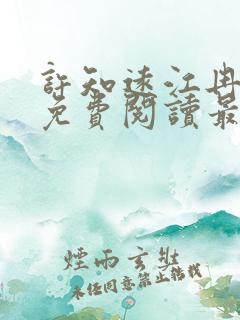 許知遠江冉
免費閱讀最
煙雨玄
未經同意禁止轉載